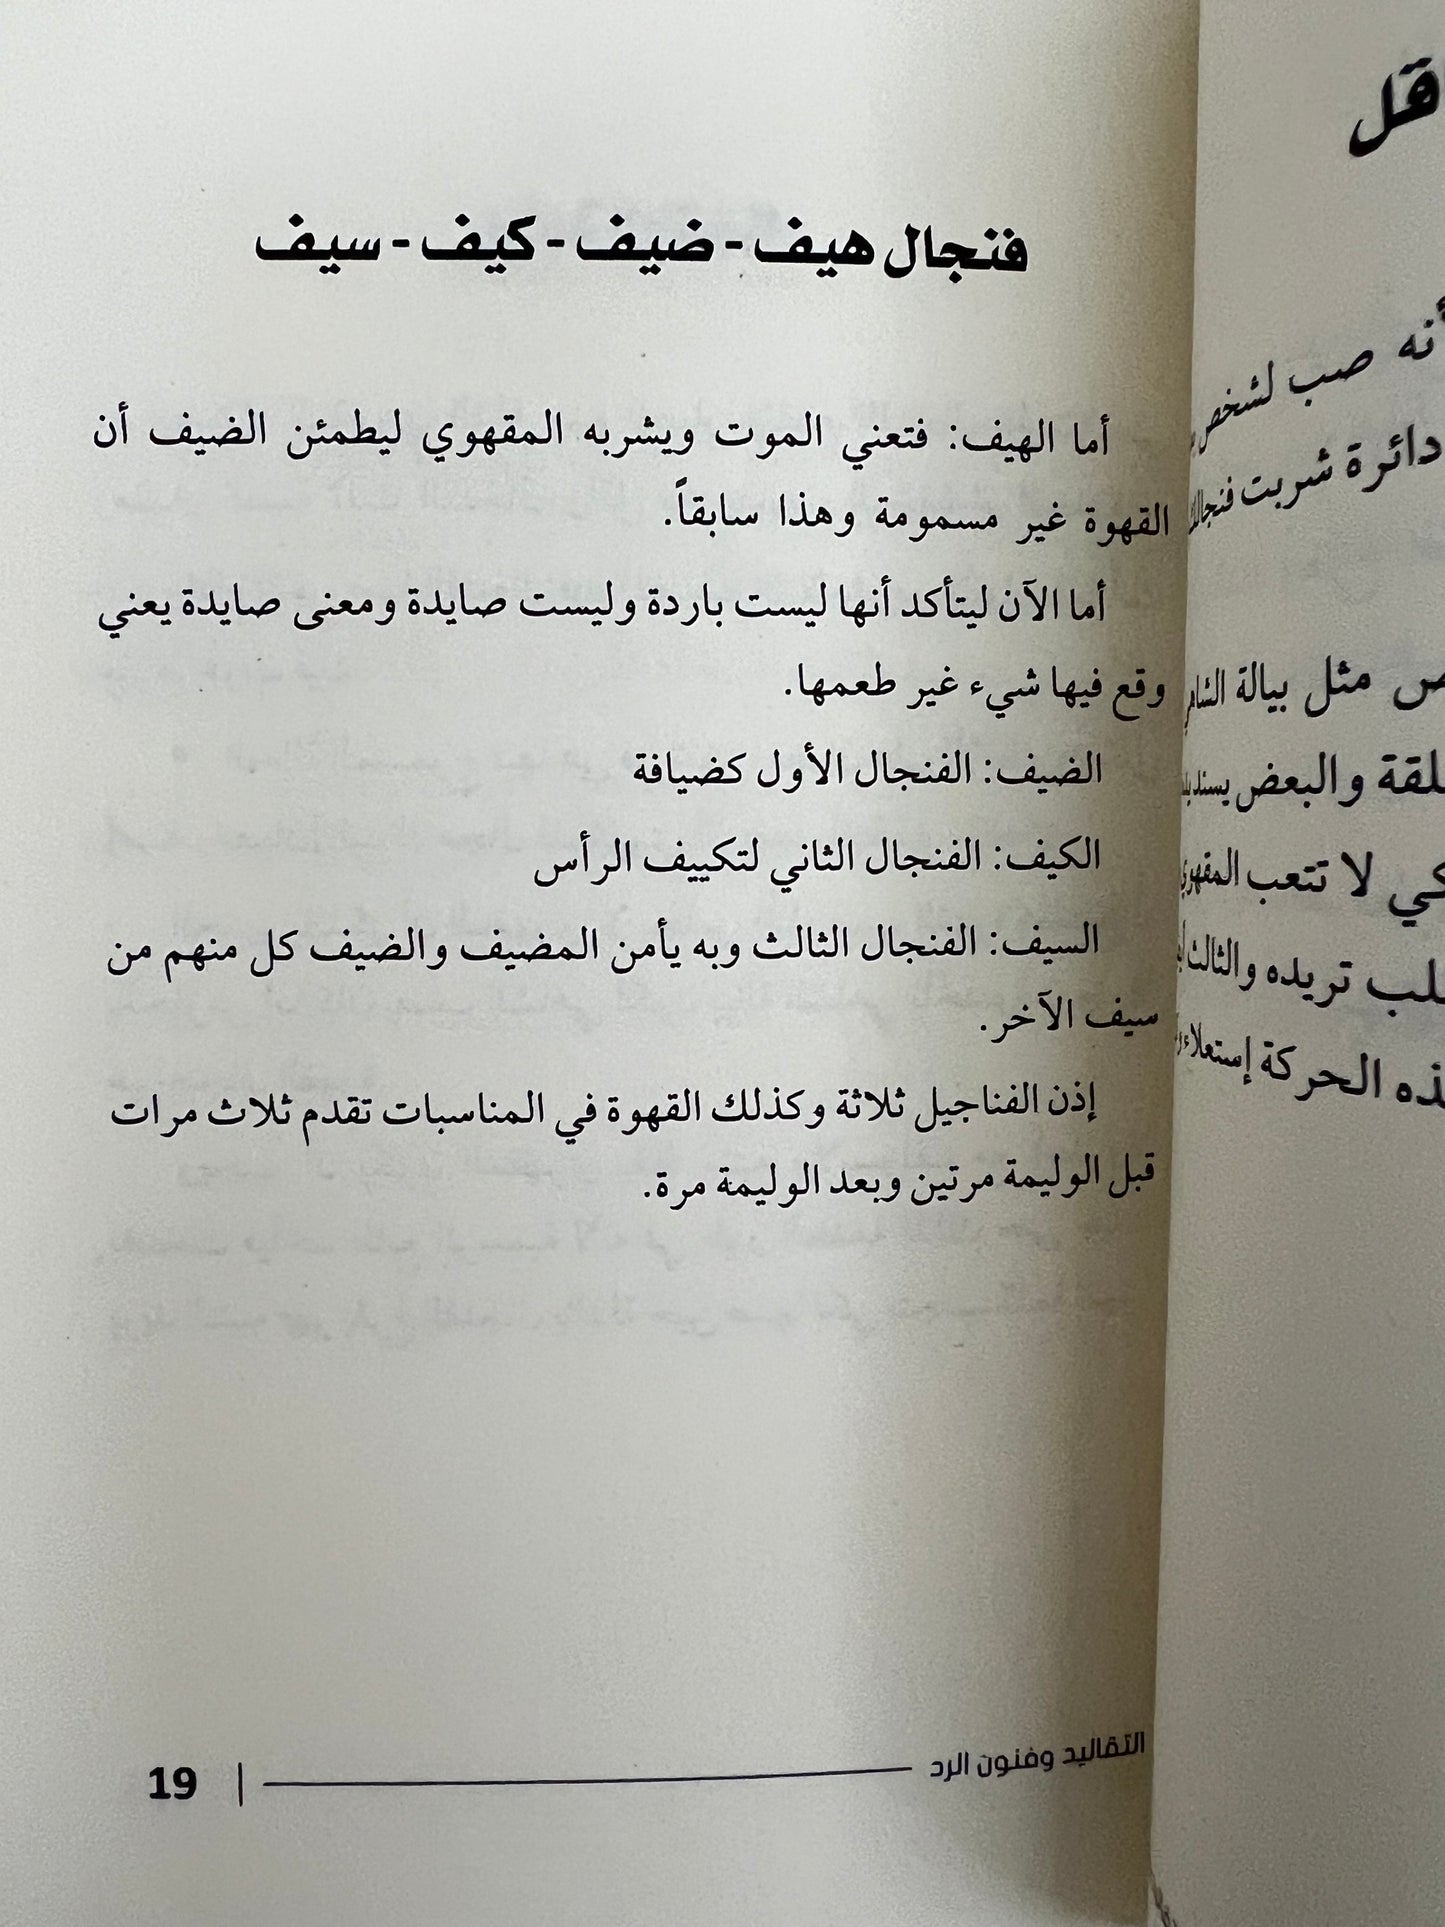 فنجال هيف - ضيف - كيف - سيف
أما الهيف: فتعني الموت ويشربه المقهوي ليطمئن الضيف أن
القهوة غير مسمومة وهذا سابقاً.
أما الآن ليتأكد أنها ليست باردة وليست صايدة ومعنى صايدة يعني
وقع فيها شيء غير طعمها.
الضيف: الفنجال الأول كضيافة
الكيف: الفنجال الثاني لتكييف الرأس
السيف: الفنجال الثالث وبه يأمن المضيف والضيف كل منهم من
سيف الآخر.
إذن الفناجيل ثلاثة وكذلك القهوة في المناسبات تقدم ثلاث مرات
قبل الوليمة مرتين وبعد الوليمة مرة.
التقاليد وفنون الرد
19
أنه صب لشخص
دائرة شربت
مثل بيالة الشاهي
والبعض يسند
لا تتعب المقهوي
تريده والثالث
الحركة إستعلاء